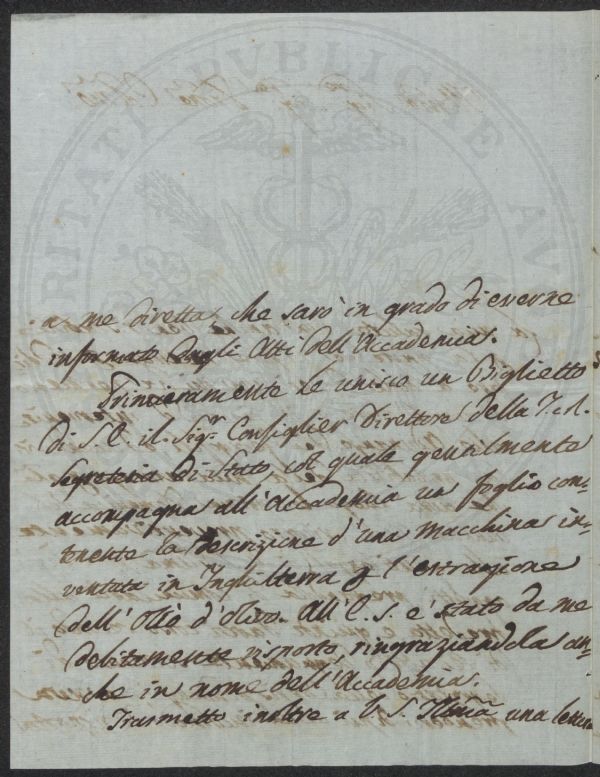 a me diretta, che sarò in grado di esserne
informato dagli Atti dell'Accademia.
Primieramente Le unisco un Biglietto
di S. E. il Sig.r Consiglier Direttore della I. e R.
Segreteria di Stato, col quale gentilmente
accompagna all'Accademia un foglio con=
tenente la descrizione d'una Macchina in=
ventata in Inghilterra p l'estrazione
dell'Olio d'Olivo. All'E. S. è stato da me
debitamente risposto, ringraziandola an=
che in nome dell'Accademia.
Trasmetto inoltre a V. S. Illma una lettera
RITATI PUBLICAE AU